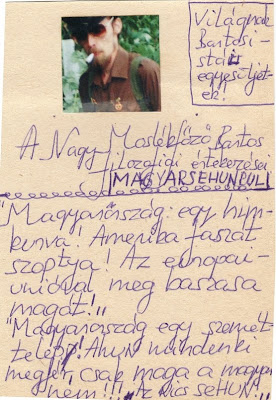 Világnak
Bartosi-
stái
egyesüljet-
ek!
A Nagy Moslékfőző Bartos
filozófiai értekezései
MAGYARSEHUNPULI
"Magyarország: egy him-
kurva! Amerika faszát
szoptya! Az európai-
unióval meg baszasa
magát!"
"Magyarország egy szemét-
telepp! Ahun mindenki
megér, csak maga a magyar
nem!!" Az nics seHUN"